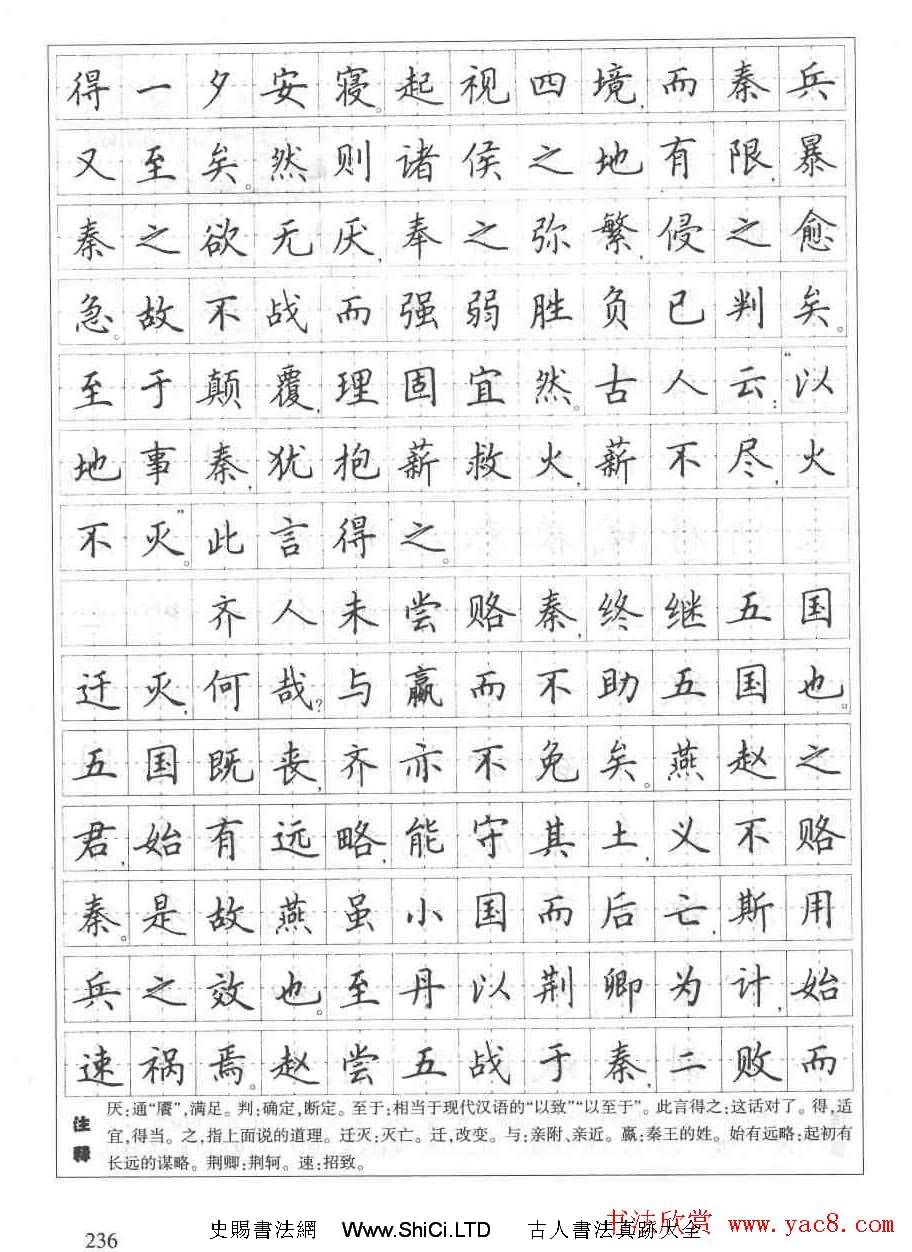 得一夕安寝。起视四境,而秦兵
又至矣。然则诸侯之地有限,暴
秦之欲无厌,奉之弥繁,侵之愈
急。故不战而强弱胜负已判矣。
至于颠覆,理固宜然。古人云:“以
地事秦,犹抱薪救火,薪不尽,火
不灭。”此言得之。
齐人未尝赂秦,终继五国
迁灭,何哉?与嬴而不助五国也。
五国既丧,齐亦不免矣。燕赵之
君,始有远略,能守其土,义不赂
秦。是故燕虽小国而后亡,斯用
兵之效也。至丹以荆卿为计,始
速祸焉。赵尝五战于秦,二败而
注释
厌:通“餍”,满足。判:确定,断定。至于:相当于现代汉语的“以致”“以至于”。此言得之:这话对了。得,适
宜,得当。之,指上面说的道理。迁灭:灭亡。迁,改变。与:亲附、亲近。嬴:秦王的姓。始有远略:起初有
长远的谋略。荆卿:荆轲。速:招致。
236
史賜書法網 Www.ShiCi.LTD 古人書法真跡大全
书法欣赏 www.yac8.com